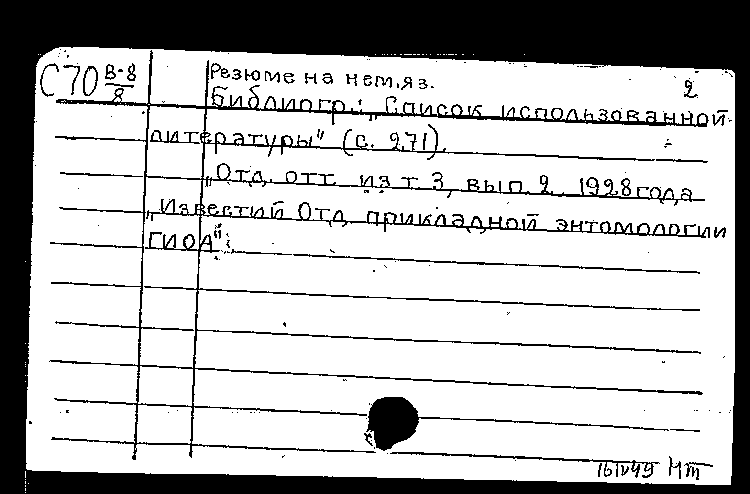 С70 В-8/8 Резюме на нем.яз. 2
Библиогр.: „Список использованной
литературы" (с. 271).
„Отд. отт. из т. 3, вып. 2 1928 года
„Известий Отд. прикладной энтомологии
ГИОА".
16 IV 49 Мт